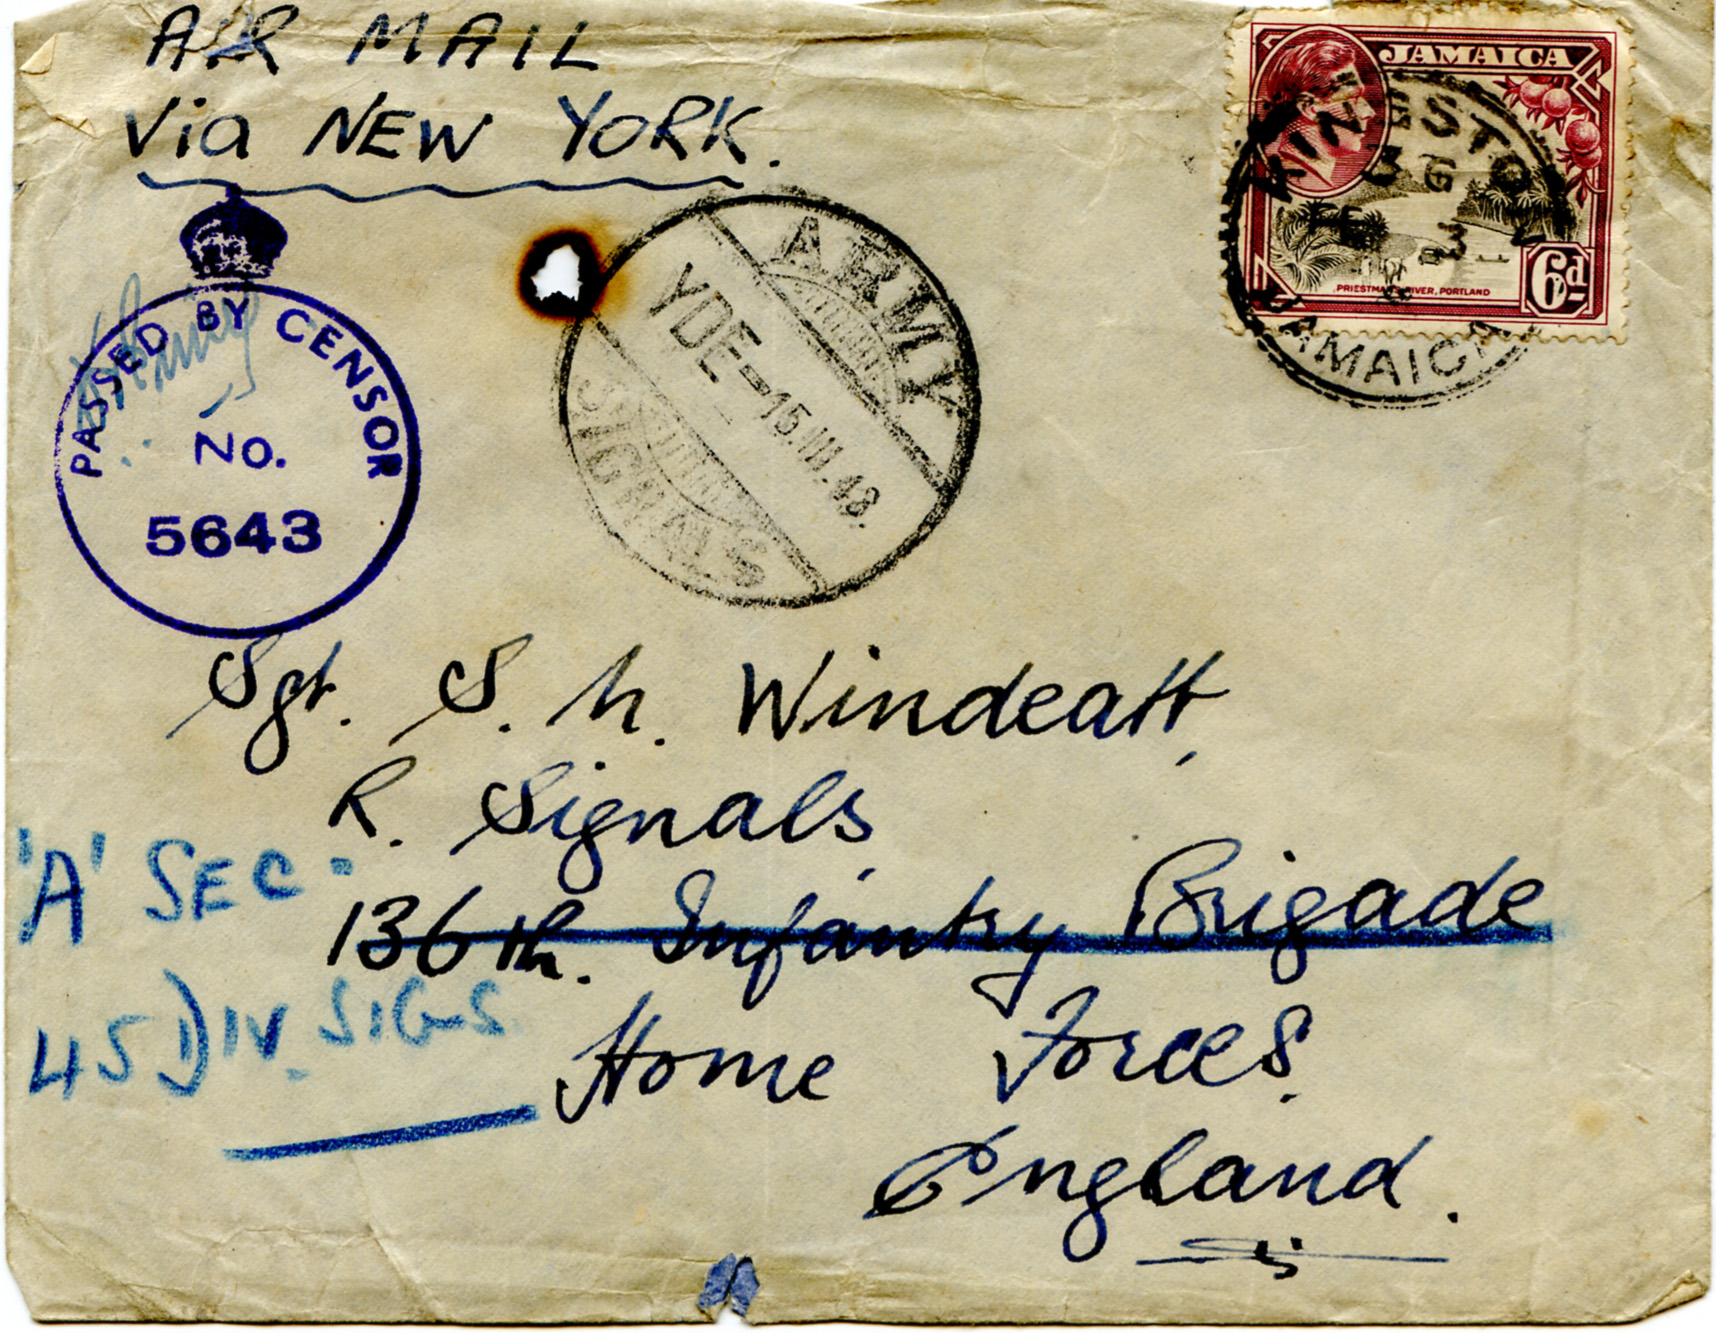 AIR MAIL
Via NEW YORK.
JAMAICA
PRIESTMAN'S RIVER, PORTLAND
6d
KINGSTON
JAMAICA
PASSED BY CENSOR
No.
5643
ARMY
YDE-15.III.43.
SIGNALS
Sgt. S. h. Windeatt,
R. Signals
136th. Infantry Brigade
'A' SEC.
45 DIV. SIGS
Home Forces.
England.